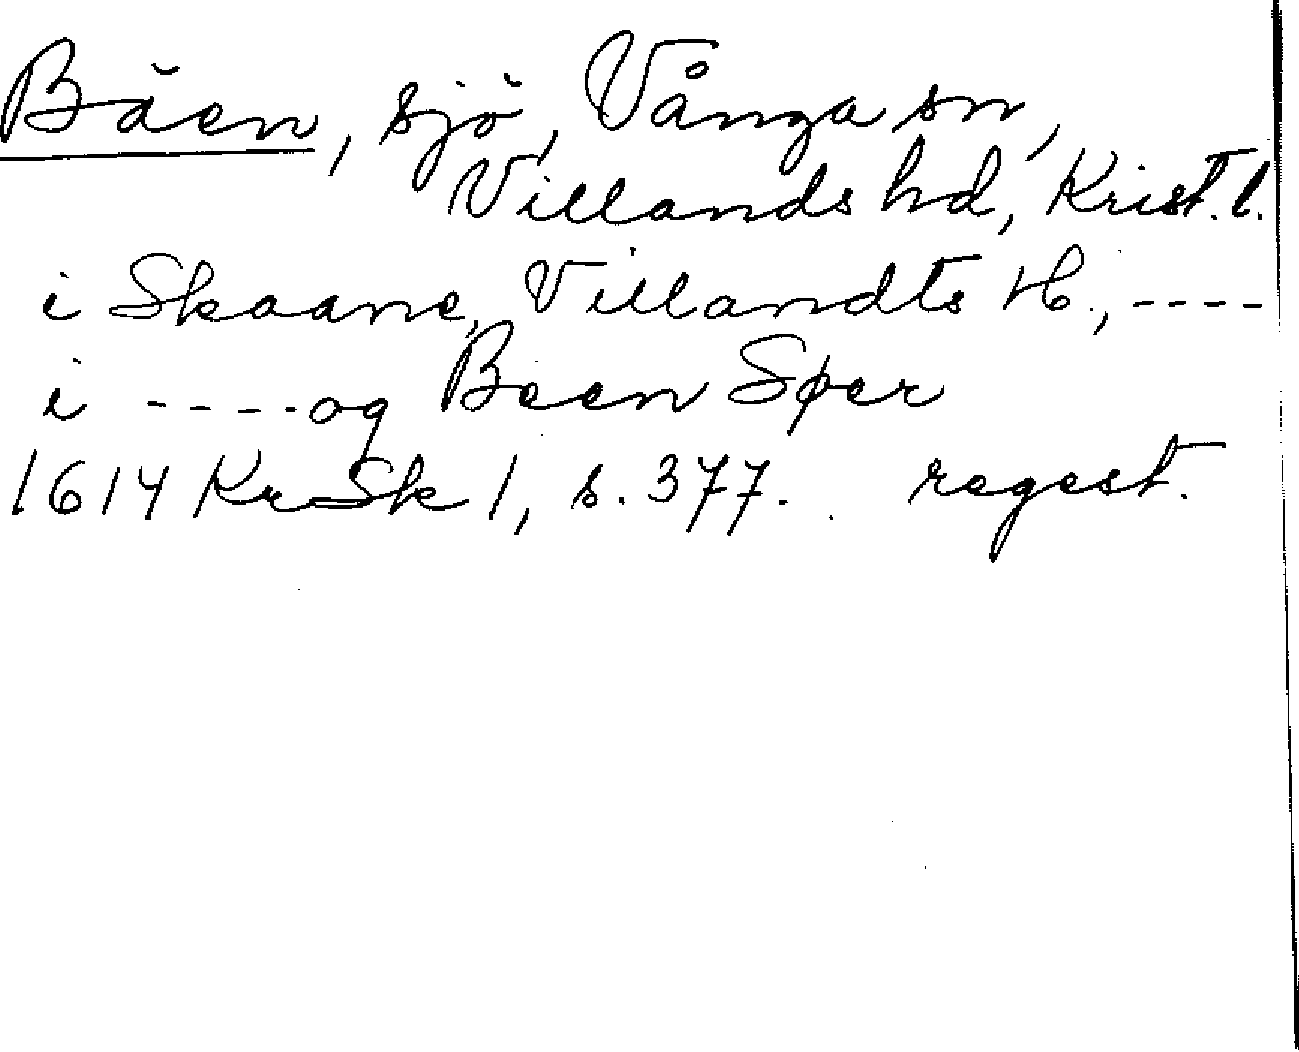 Bäen, sjö, Vånga sn,
Villands hd, Krist. l.
i Skaane, Villandts H., ----
i ---- og Been Søer
1614 KrSk 1, s. 377. regest.